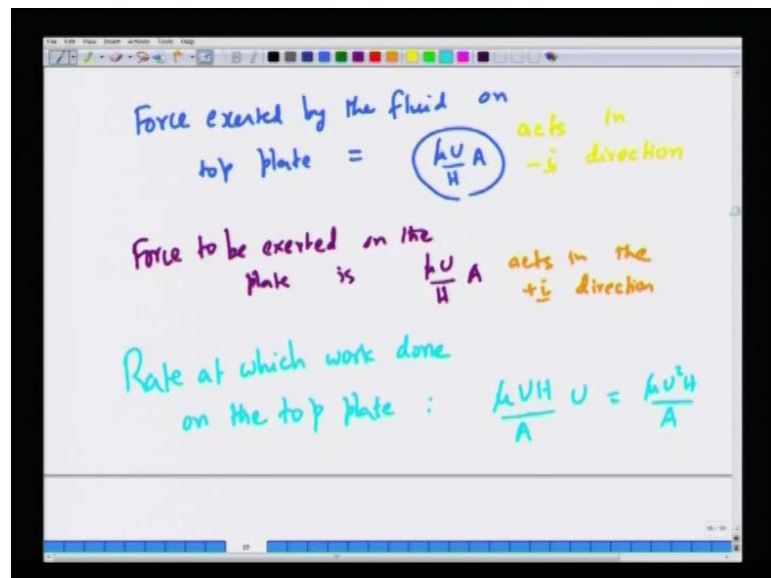 Force exerted by the fluid on
top plate = μU/H A acts in
-i direction
Force to be exerted on the
plate is μU/H A acts in the
+i direction
Rate at which work done
on the top plate : μUH/A U = μU²H/A